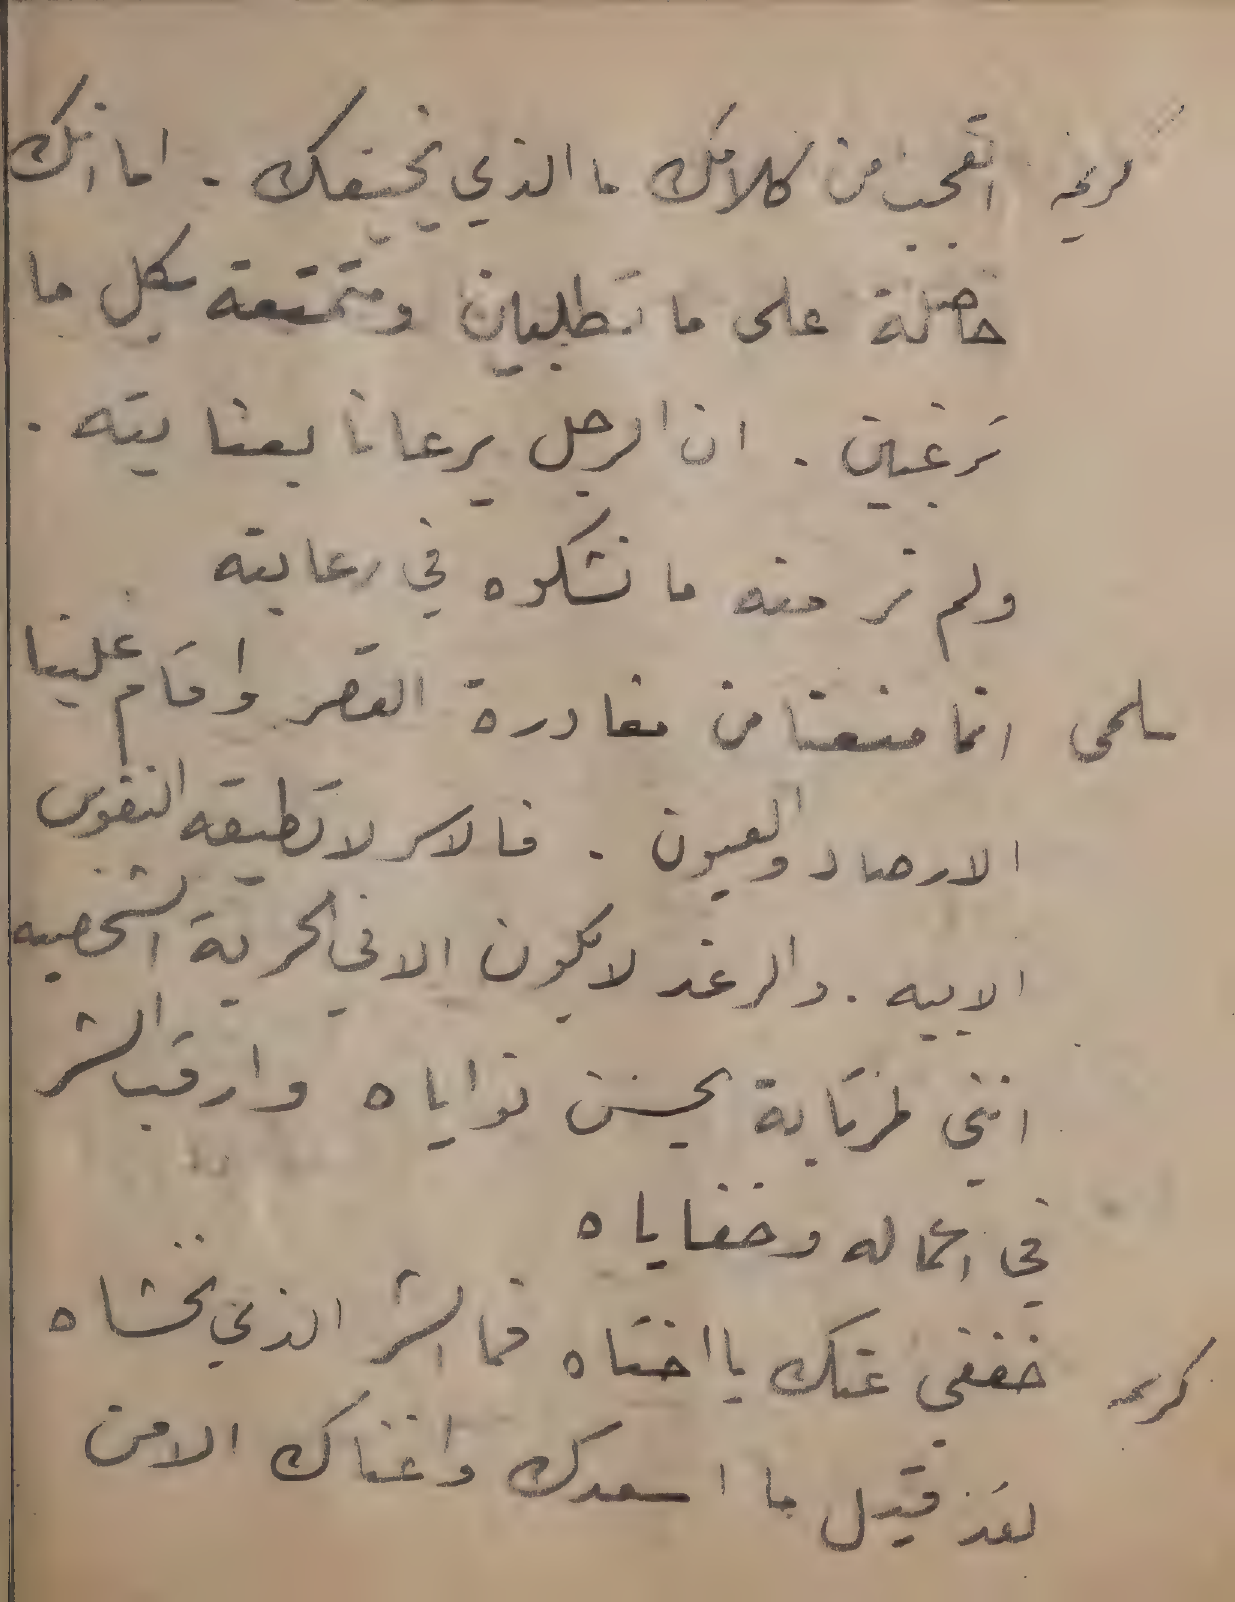 كريمه اتعجب من كلامك ما الذي يخيفك . اما انك
حاصلة على ما تطلبين ومتمتعة بكل ما
ترغبين . ان الرجل يرعانا بعنايته .
ولم نر منه ما نشكوه في رعايته
سلمى انما منعنا من مغادرة القصر واقام علينا
الارصاد والعيون . فالاسر لا تطيقه النفوس
الابيه . والرغد لا يكون الا في الحرية الشخصيه
انني لمرتابة بحسن نواياه وارقب الشر
في اعماله وخفاياه
كريمه خففي عنك يا اختاه فما الشر الذي نخشاه
لقد قيل ما اسعدك واغناك الامن